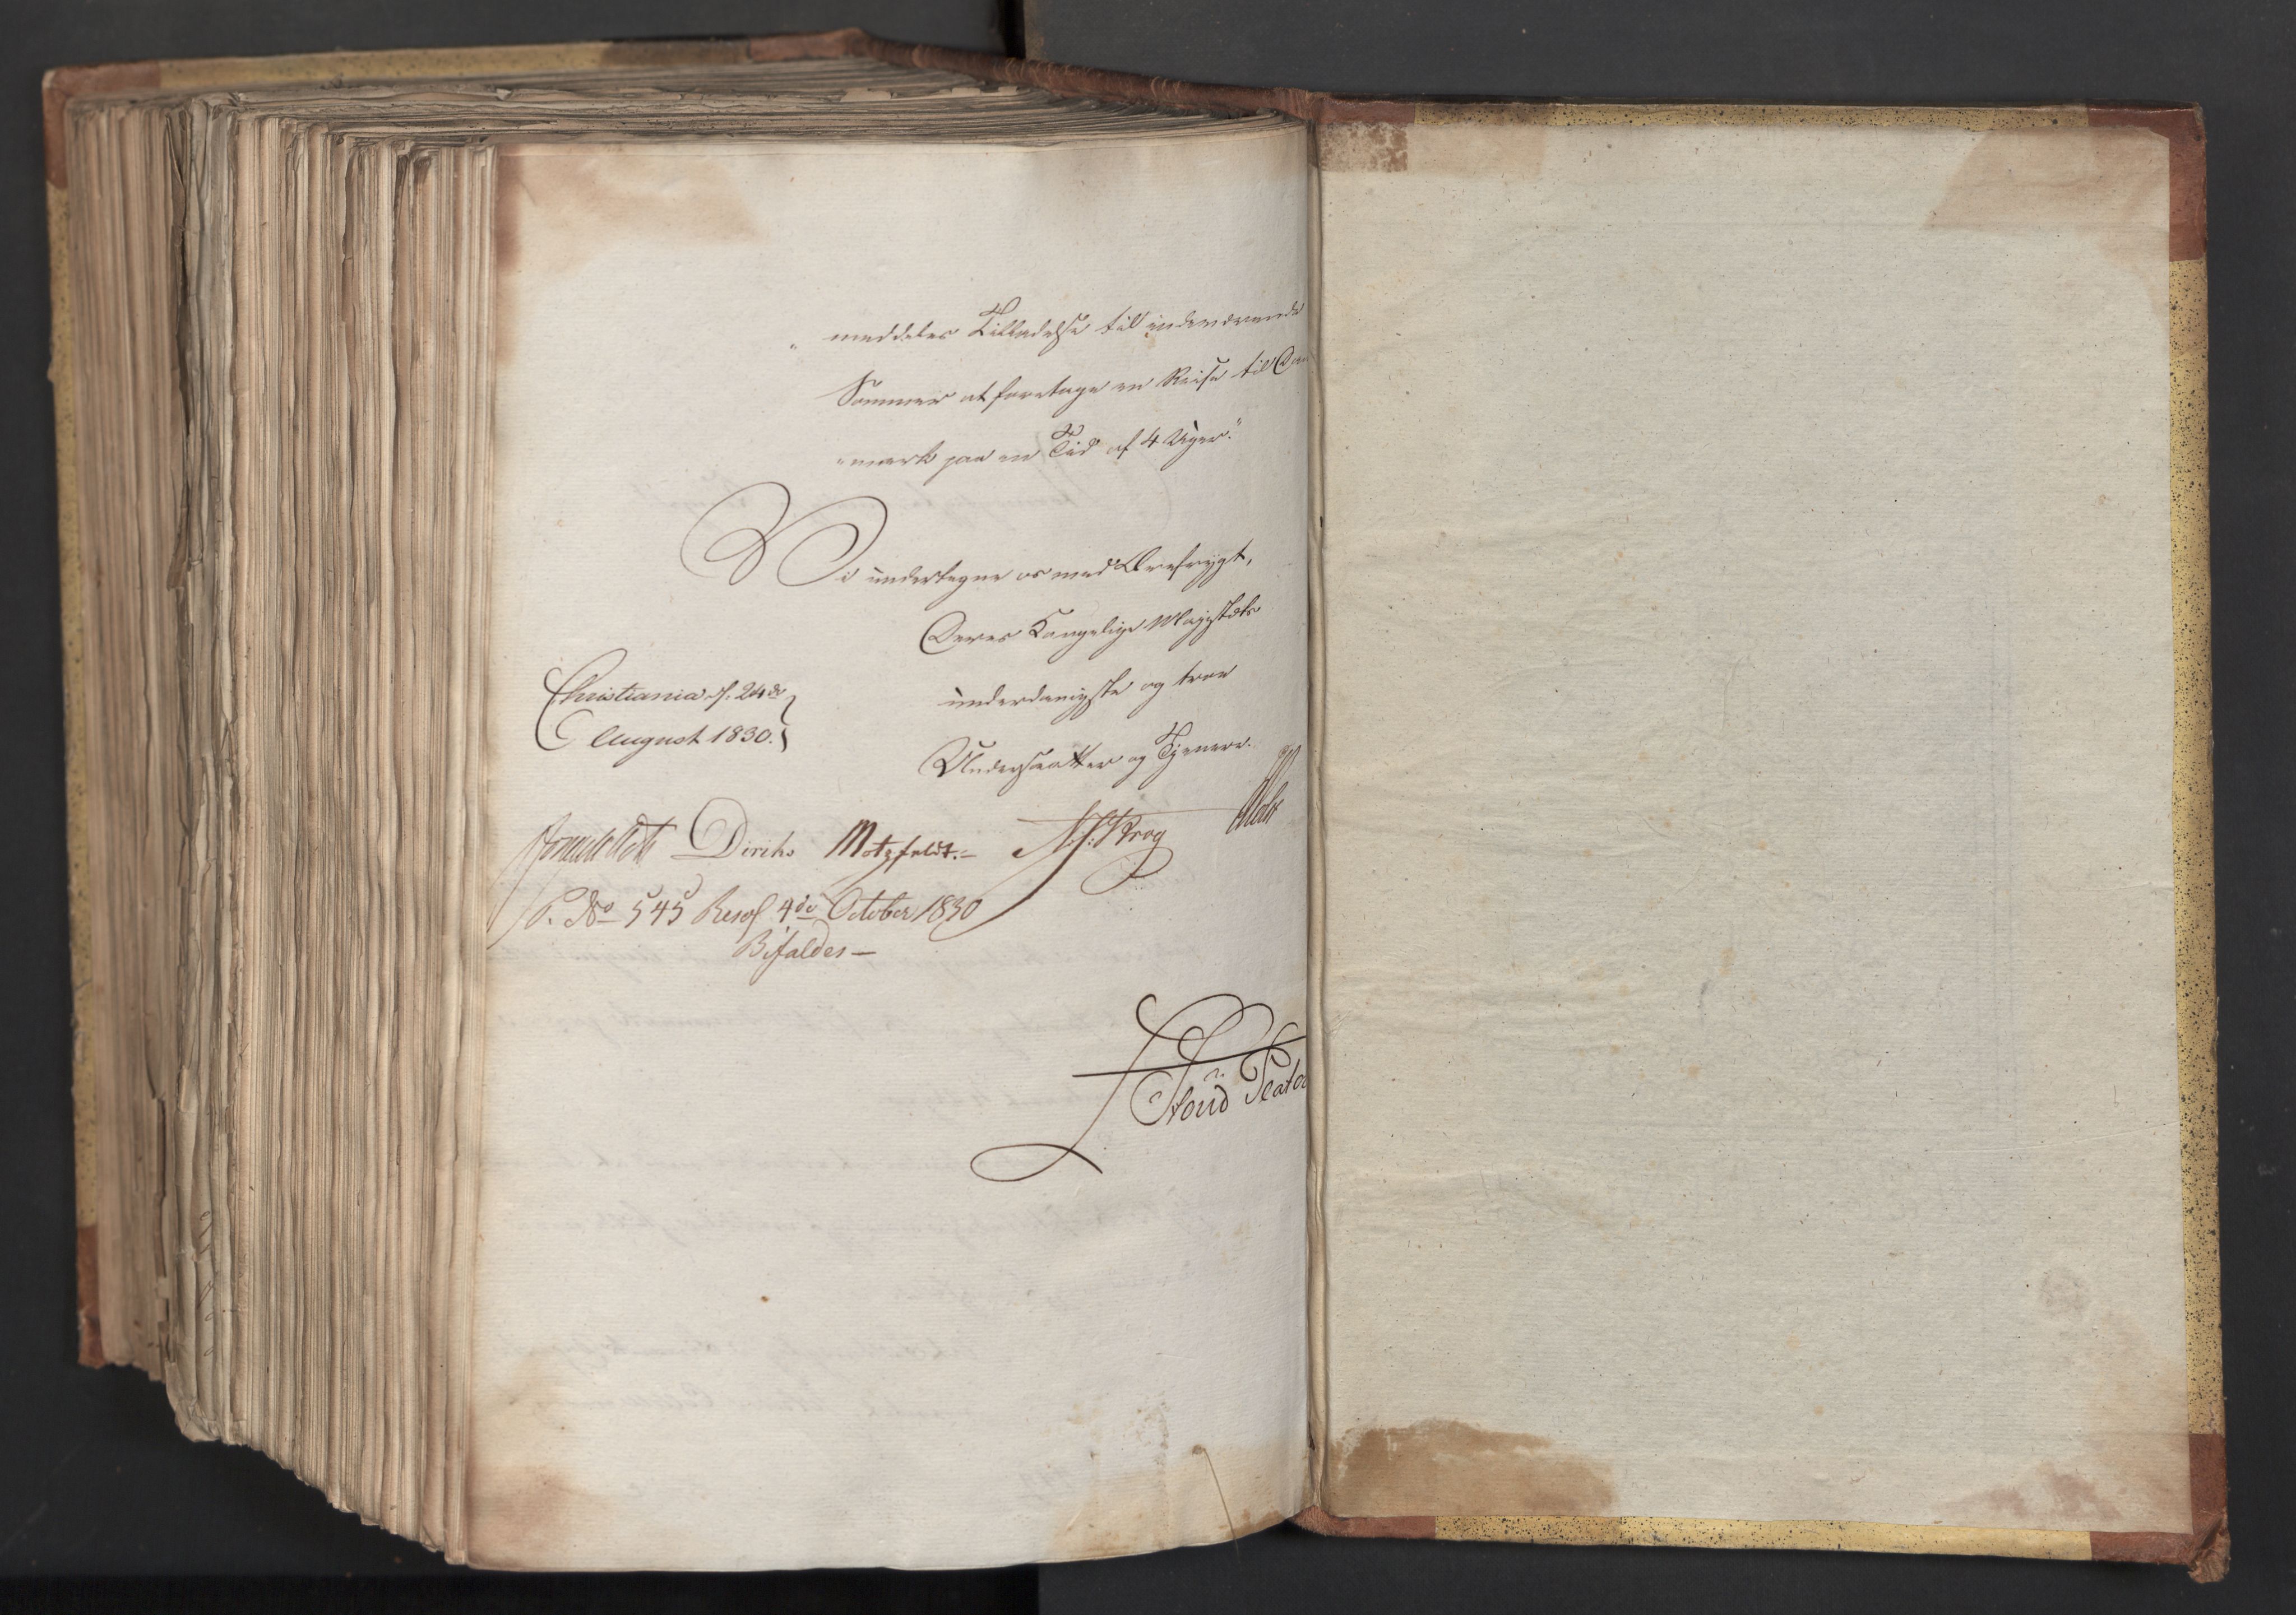 „ meddeles Tilladelse til indeværende
Sommer at foretage en Reise til Dan
„mark paa en Tid af 4 Uger."
Vi undertegne os med Ærefrygt,
Deres Kongelige Majestæts
underdanigste og troe
Undersaatter og Tjenere.
Christiania d. 24de
August 1830.
Diriks Motzfeldt.– Krog
P. No 545 Resol 4de October 1830
Bifaldes –